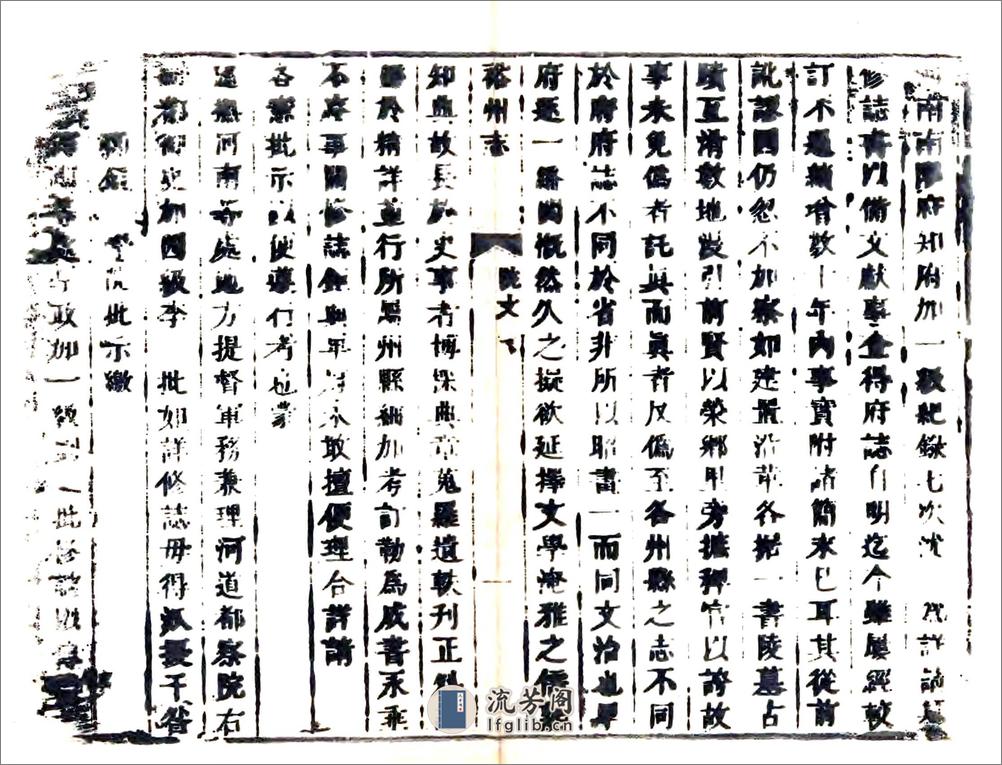 南南陽府知府加一級紀錄七次沈 為詳請
修誌書以備文獻事查得府誌自明迄今雖屢經校
訂不過續增數十年內事實附諸簡末已耳其從前
訛謬因仍忽不加察如建置沿革各據一書陵墓古
蹟互淆數地發引前賢以榮鄉里旁摭稗官以誇故
事未免偽者託真而真者反偽至各州縣之志不同
於府府誌不同於省非所以昭畫一而同文治也卑
府逐一繙閱慨然久之擬欲延擇文學淹雅之儒
裕州志
詳文
一
知典故長於史事者博採典章蒐羅遺軼刊正
於精詳並行所屬州縣細加考訂勒為成書永垂
不朽事關修誌 未敢擅便理合詳請
各憲批示以便遵行者也蒙
巡撫河南等處地方提督軍務兼理河道都察院右
副都御史加四級李 批如詳修誌毋得派擾干咎
批示繳
政加一級 批修誌